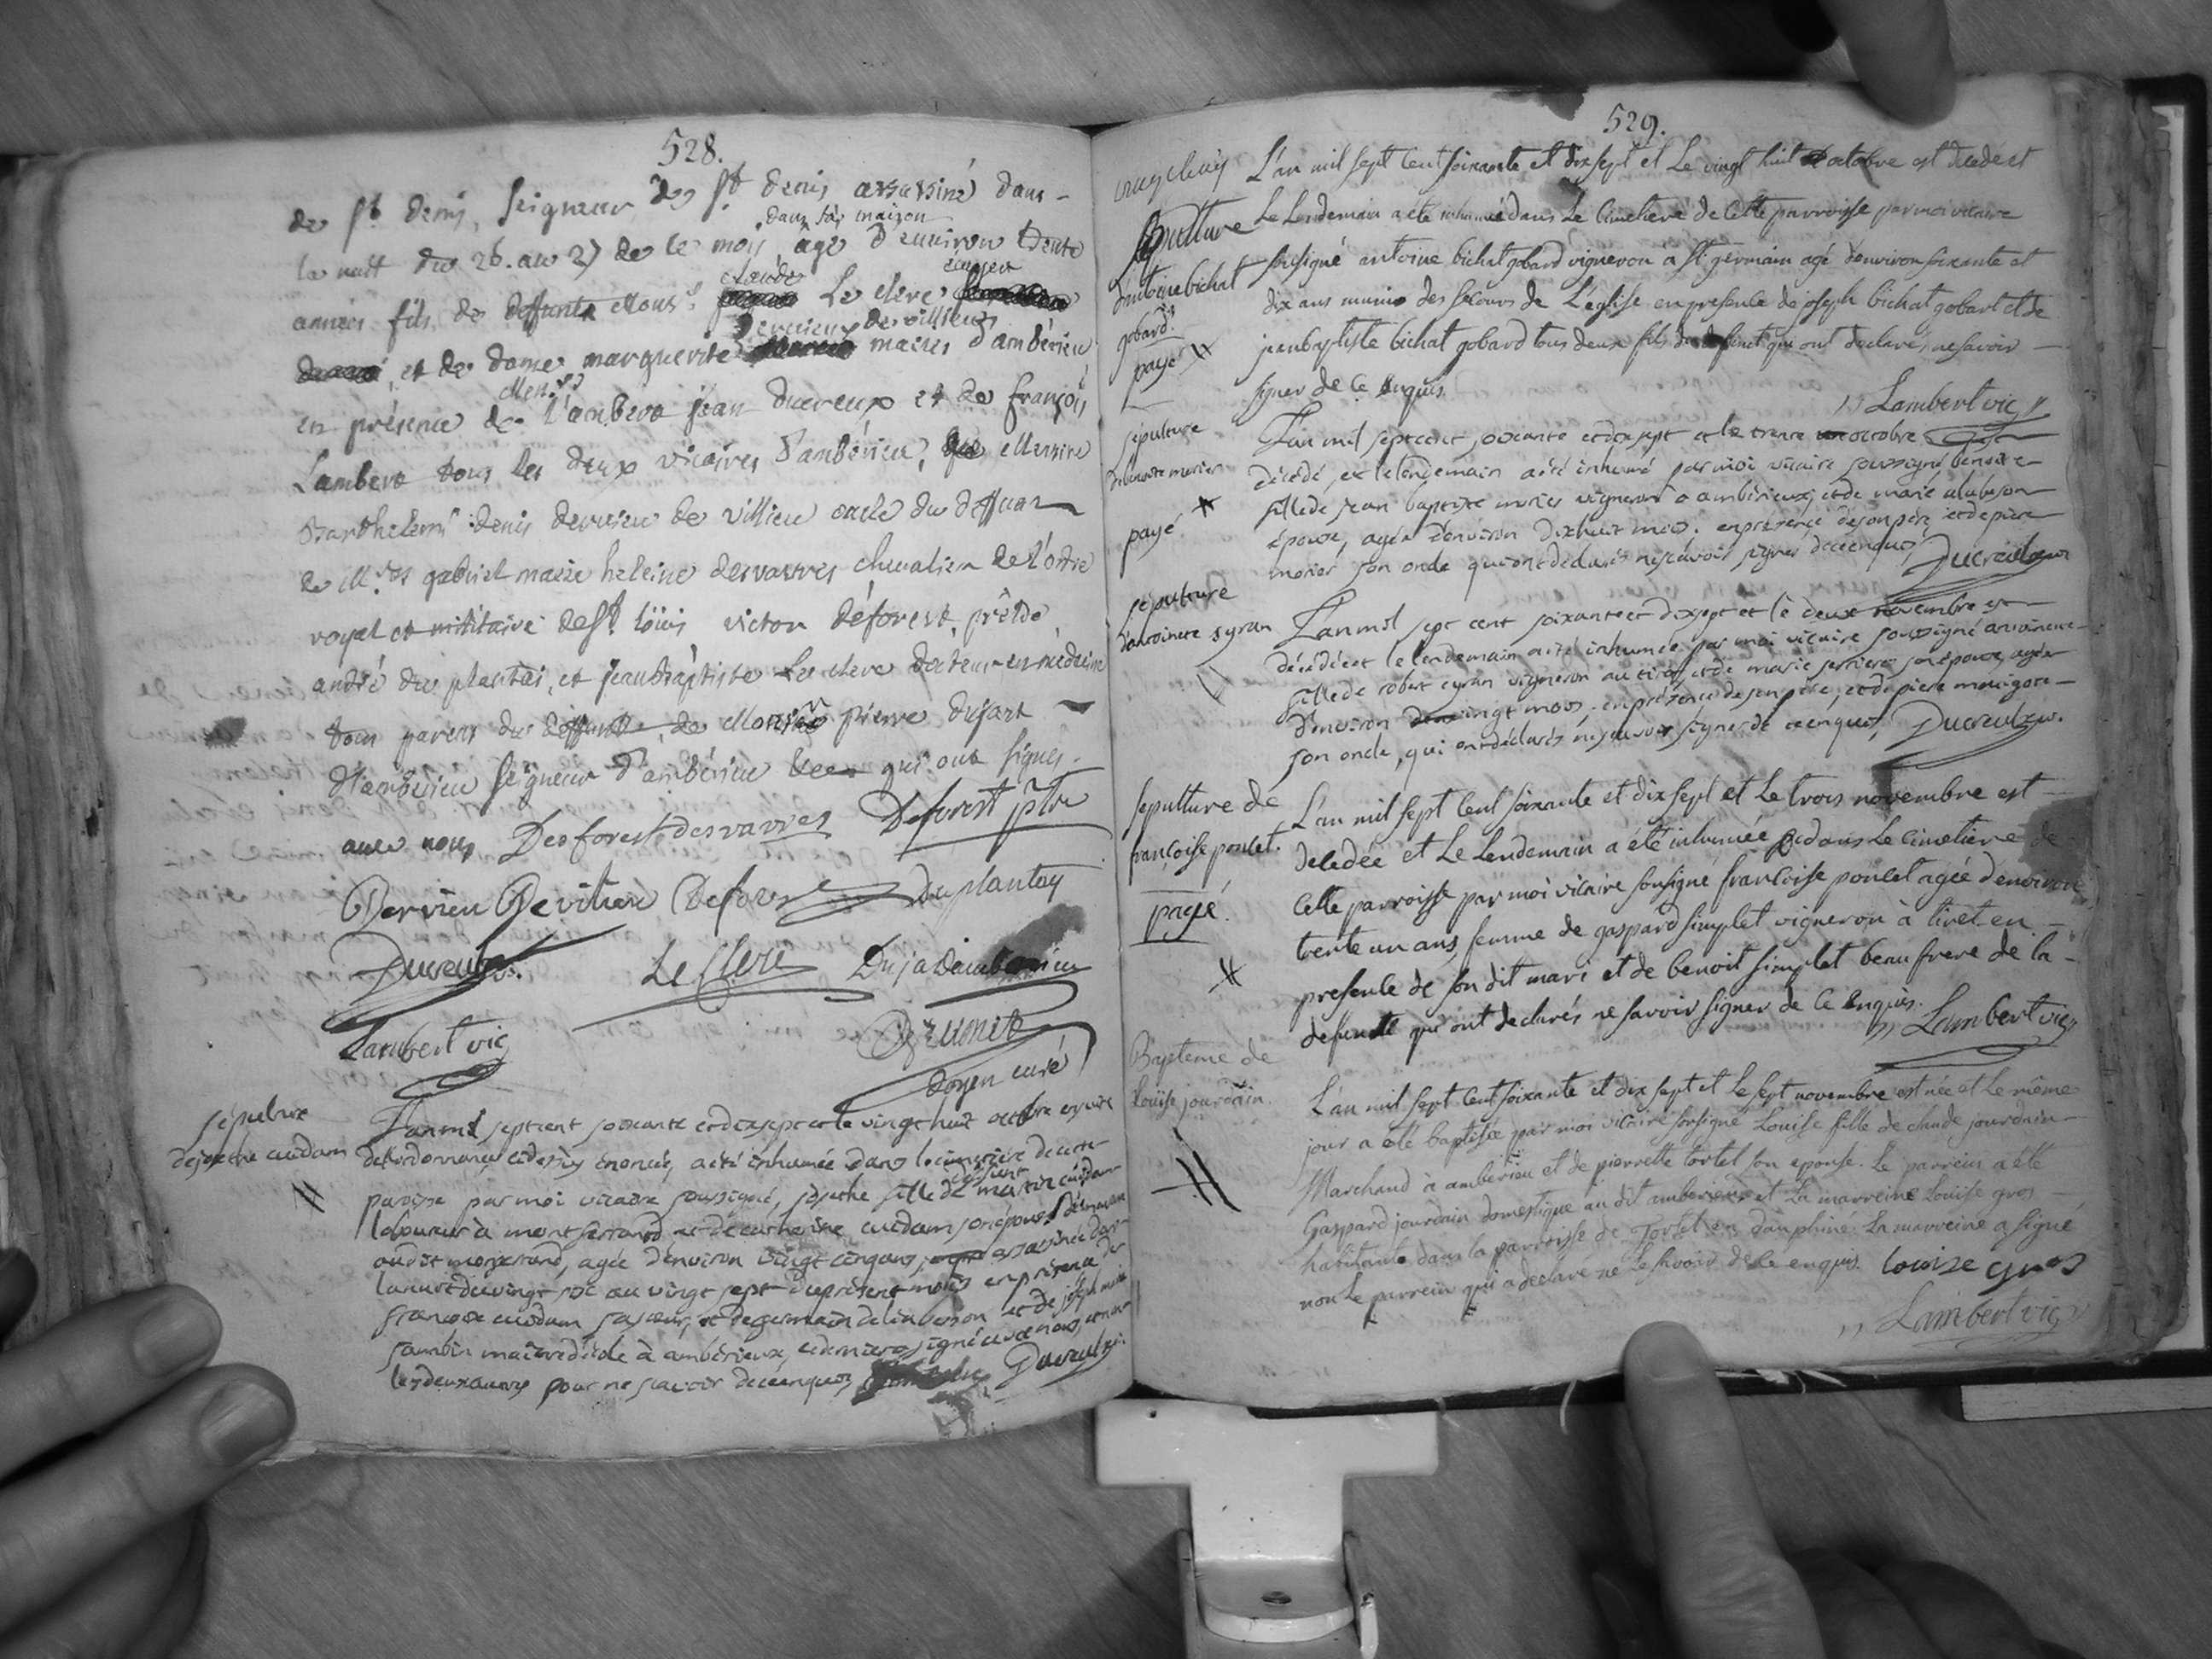 528.
de st denis, seigneur de st denis assassiné dans
dans sa maison
la nuit du 26. au 27 de ce mois âgé d'environ trente
claude écuyer
années fils de deffunt mons.r Le clerc
dervieu de villieu
et de dame marguerite maires d'ambérieu
Mess.rs
en présence de Lambert jean ducreux et de françois
Lambert tous les deux vicaires d'ambérieu, messire
Barthelemi denis dervieu de villieu oncle du deffunt
de M.re gabriel marie heleine desvavres chevalier de l'ordre
royal et militaire de st. loüis victor deforest, prêtre
andré du plantai, et jean Baptiste Le clerc docteur en médecine
tous parens du deffunt, de Monsieur pierre dujast
d'ambérieu seigneur d'ambérieu qui ont signés
avec nous Deforest desvavres Deforest ptre
Dervieu De villieu Deforest duplantay
Ducreux vic. Le Clerc Dujas d'amberieu
Lambert vic
doyen curé
sépulture
de josephe cuidam
L'an mil sept cent soixante et dix sept et le vingt huit octobre en suite
de l'ordonnance cidessus énoncée, a été inhumée dans le cimetière de cette
paroisse par moi vicaire soussigné, josephe fille de deffunt martin cuidam
laboureur à montferrand et de catherine cuidam son épouse demeurante
audit montferrand, agée d'environ vingt cinq ans, assassinée dans
la nuit du vingt six au vingt sept du présent mois en présence de
françoise cuidam sa sœur, et de germain delinberson et de joseph marie
sambin maitre d'école à ambérieux, ce dernier a signé avec nous, et non
les deux autres pour ne sçavoir de ce enquis Ducreux vic.
529.
Sepulture
d'antoine bichat
gobard.
payé
L'an mil sept cent soixante et dix sept et Le vingt huit octobre est decedé et
Le Lendemain a été inhumé dans Le Cimetiere de Cette parroisse par moi vicaire
sousigné antoine bichat gobard vigneron a st germain agé d'environ soixante et
dix ans munis des secours de L'eglise en presence de joseph bichat gobart et de
jean baptiste bichat gobard tous deux fils du defunct qui ont declarés ne savoir
signer de Ce Enquis.
Lambert vic
sépulture
de benoite morier
payé
L'an mil sept cent soixante et dix sept et le trente octobre est
décédé, et le lendemain a été inhumé par moi vicaire soussigné benoite
fille de jean baptiste morier vigneron à ambérieux, et de marie alabeson
épouse, agée d'environ dix huit mois. en présence de son père, et de piere
morier son oncle qui ont déclarés ne sçavoir signer de ce enquis Ducreux vic
sépulture
d'antoinete syran
L'an mil sept cent soixante et dix sept et le deux novembre est
décédée et le lendemain a été inhumée par moi vicaire soussigné antoinette
fille de robert syran vigneron au tiret et de marie serriere son épouse, agée
d'environ vingt mois, en présence de son père, et de piere
son oncle, qui ont déclarés ne sçavoir signer de ce enquis, Ducreux vic.
sepulture de
françoise poncet.
payé.
L'an mil sept Cent soixante et dix sept et Le trois novembre est
decedée et Le Lendemain a été inhumée dans Le Cimetiere de
Cette parroisse par moi vicaire sousigné francoise poncet agée d'environ
trente un ans, femme de gaspard simplet vigneron à tiret en
presence de son dit mari et de benoit simplet beau frere de la
defuncte qui ont declarés ne savoir signer de Ce Enquis.
Lambert vic
Bapteme de
Louise jourdain.
L'an mil sept Cent soixante et dix sept et Le sept novembre est née et Le même
jour a été baptisée par moi vicaire sousigné Louise fille de claude jourdain
Marchand a amberieu et de pierrette tortel son epouse. Le parrein a été
Gaspard jourdain domestique au dit amberieux et La marreine Louise gros
habitante dans la parroisse de en dauphiné. La marreine a signé
non Le parrein qui a declaré ne Le savoir de Ce enquis. Louise gros
Lambert vic